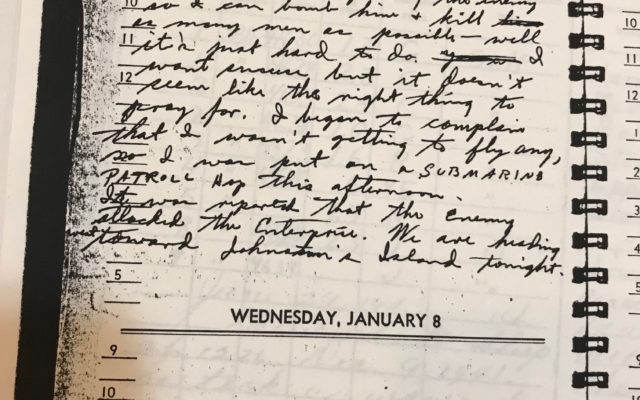 the enemy
10 so I can bomb him & kill
as many men as possible — well
11 it's just hard to do. I
want but it doesn't
12 seem like the right thing to
pray for. I began to complain
that I wasn't getting to fly any,
so I was put on a SUBMARINE
PATROLL Hop this afternoon.
It was reported that the Enemy
attacked the Enterprise. We are heading
toward Johnston's Island tonight.
5
WEDNESDAY, JANUARY 8
9
10